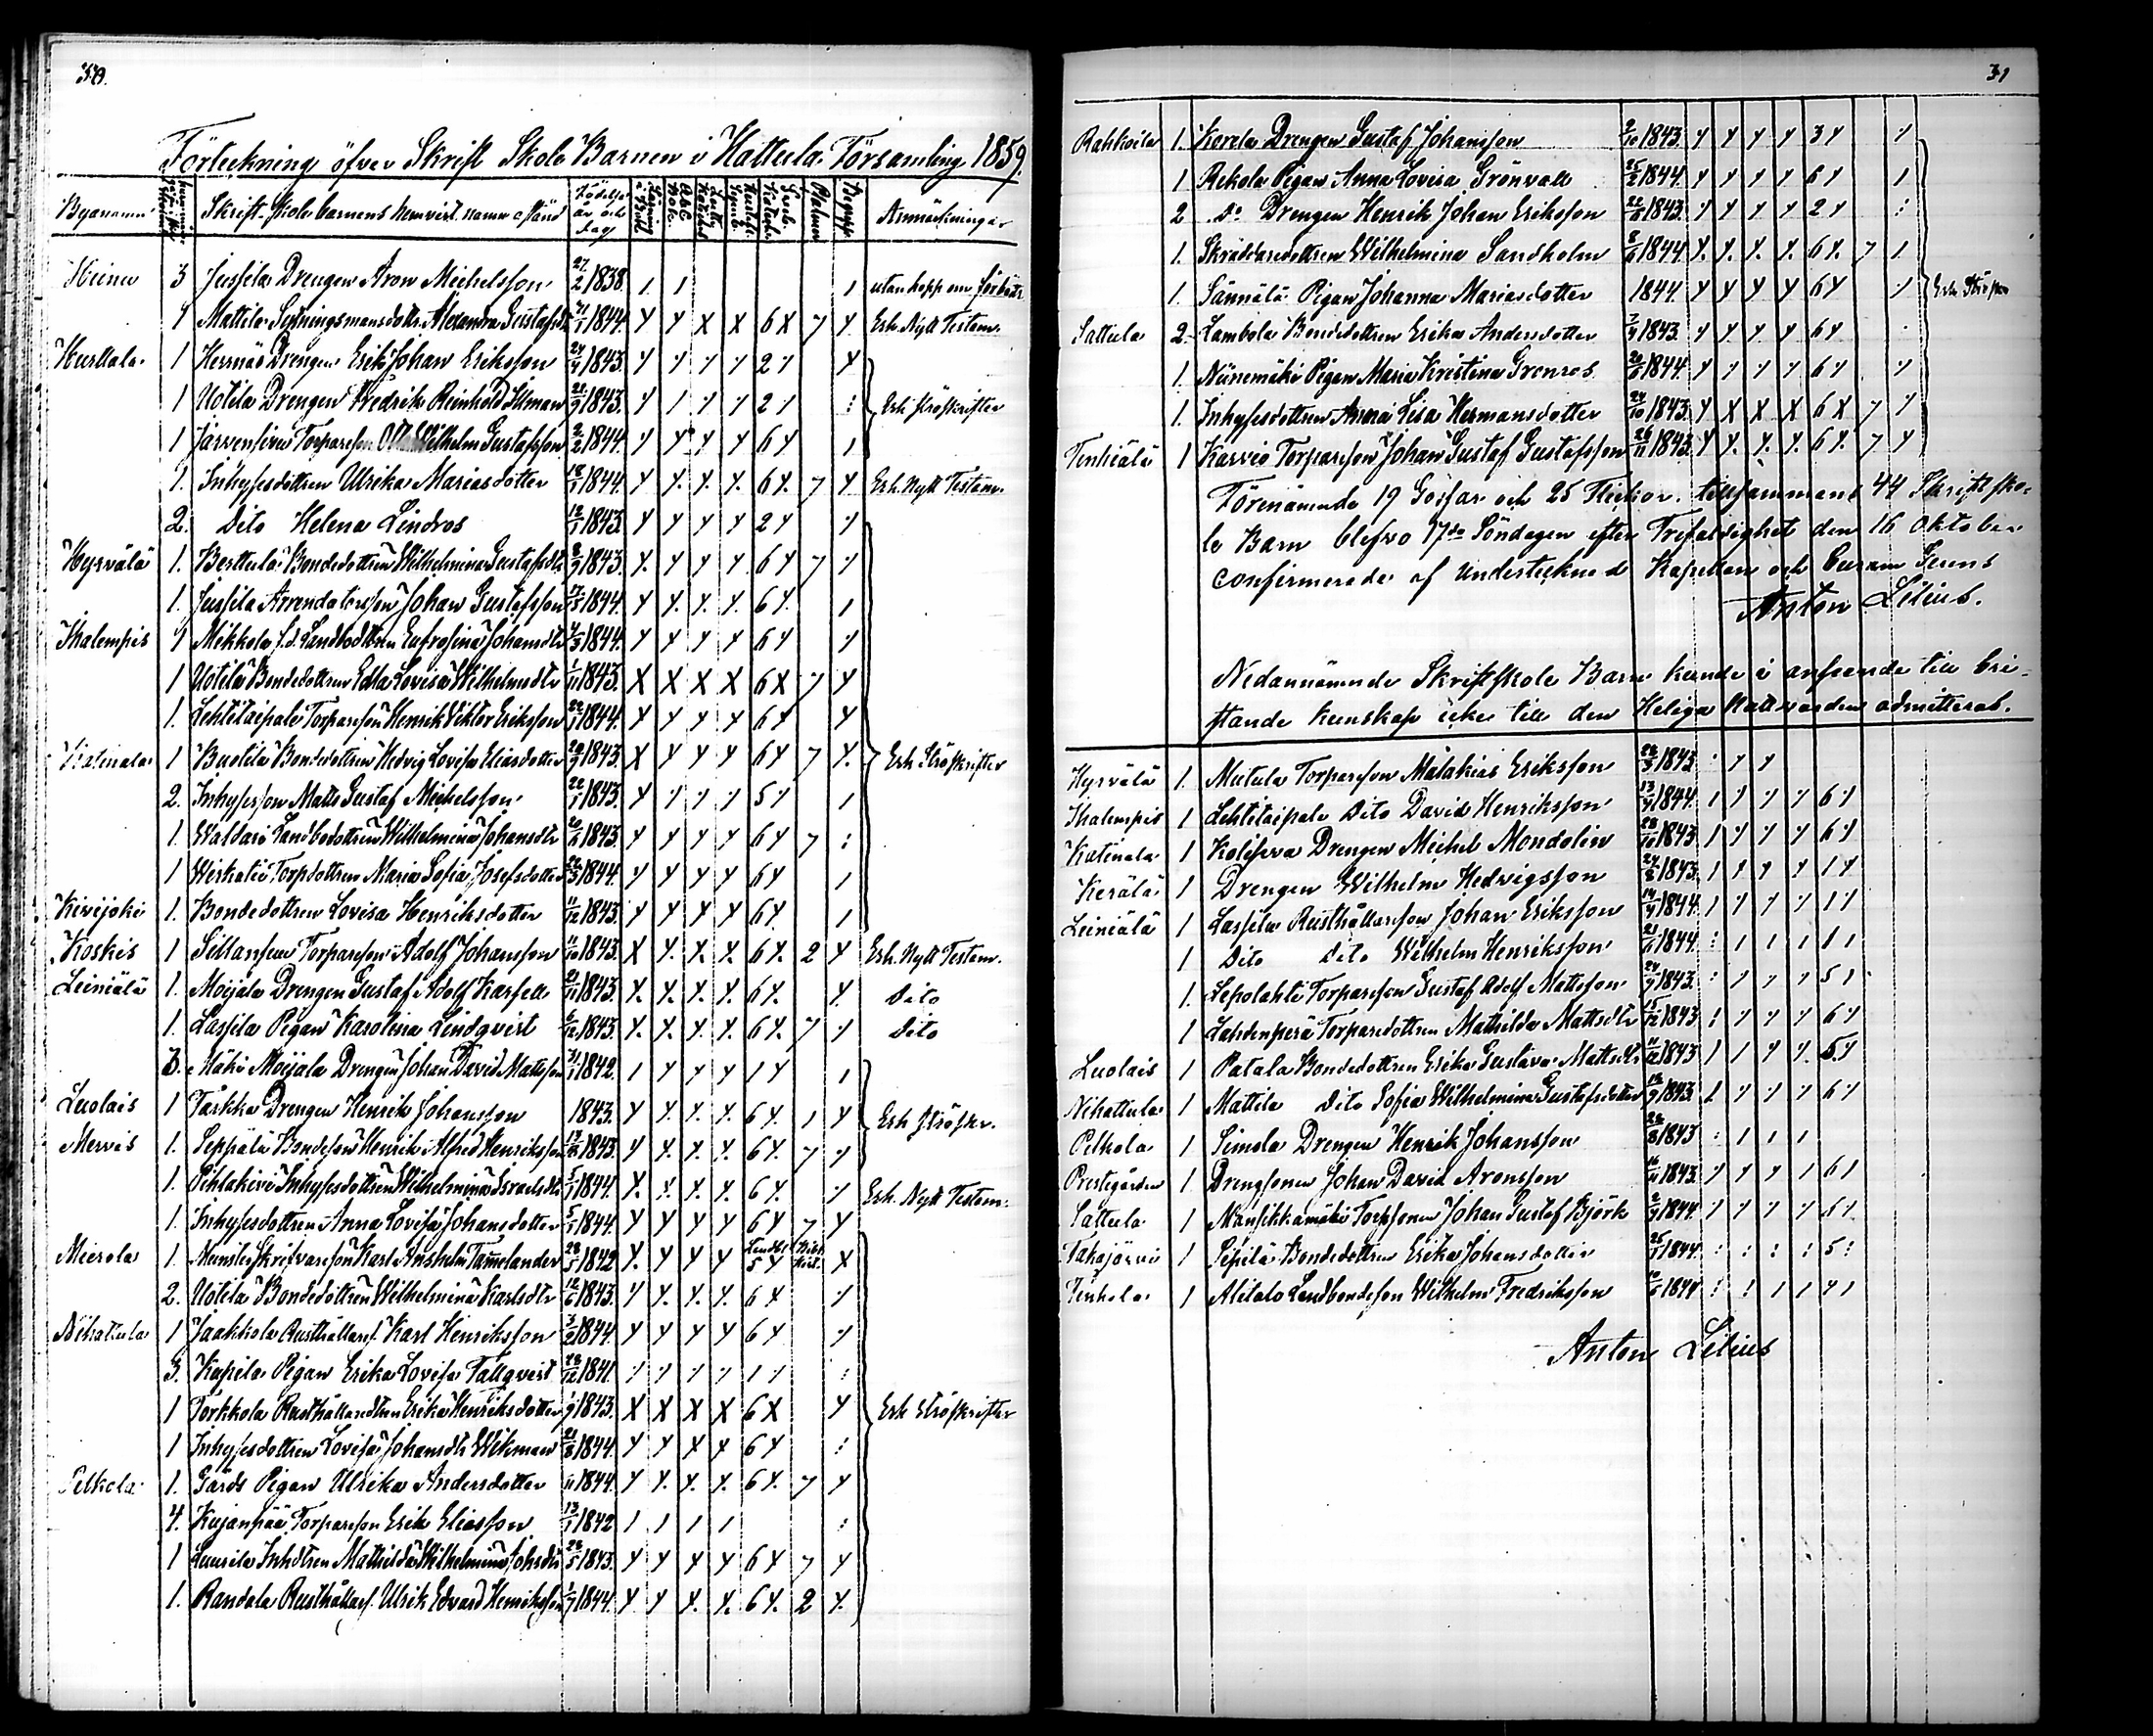 30.
Förteckning öfver Skrift Skole Barnen i Hattula Församling 1859.
Byanamn Skrift-skole barnens hemvist. namn o stånd Födelse år och dag A.b.c. Bok Psalmer Begrepp Anmärkningar
Heinu 3 Jussila Drengen Aron Michelsson 27/2 1838. utan hopp om förbättr.
1 Mattila Sytningsmansdottr. Alexandra Gustafsdr 1844. 6 X 7 Erh. Nytt Testam.
Hurttala 1 Herrnäs Drengen Erik Johan Eriksson 24/4 1843. 2
1 Uotila Drengen Fredrik Reinhold Ilman 21/9 1843. 2 Erh ströskrifter
1 Järvensivu Torpareson Otto Wilhelm Gustafsson 2/2 1844. 6
1. Inhysesdottren Ulrika Mariasdotter 18/1 1844. 6 7 Erh. Nytt Testam.
2. Dito Helena Lindros 1843. 2
Hyrvälä 1. Berttula Bondedottren Wilhelmina Gustafsdtr 1843. 6 7
1. Jussila Arrendatorsson Johan Gustafsson 17/5 1844. 6
Ihalempis 1 Mikkola f.d. Landbodottren Eufrosina Johansdtr 4/3 1844. 6
1 Uotila Bondedottren Edla Lovisa Wilhelmsdtr 1/11 1843. X X X X 6 X 7
1. Lehtitaipale Torpareson Henrik Viktor Eriksson 22/1 1844. 6
Katinala 1 Buotila Bondedottren Hedvig Lovisa Eliasdotter 29/9 1843. 6 7 Erh Ströskrifter
2. Inhyseson Matts Gustaf Michelsson 22/1 1843. 5
1 Waldari Landbodottren Wilhelmina Johansdtr 20/6 1843. 6 7
1 Wirkatie Torpdottren Maria Sofia Josefsdotter 22/3 1844. 6
Kivijoki 1. Bondedottren Lovisa Henriksdotter 11/12 1843. 6
Koskis 1 Sillansuu Torpareson Adolf Johansson 11/10 1843. 6 2 Erh. Nytt Testam.
Leiniälä 1. Moijala Drengen Gustaf Adolf Karsell 21/11 1843. 6 Dito
1. Lassila Pigan Karolina Lindqvist 6/12 1843. 6 7 Dito
3. Mäki Moijala Drengen Johan David Mattsson 31/1 1842. 1
Luolais 1 Tarkka Drengen Henrik Johansson 1843. 6 1 Erh ströskr.
Mervis 1. Seppälä Bondeson Henrik Alfred Henriksson 1843. 6 7
1. Pihlakivi Inhysesdottren Wilhelmina Israelsdtr 5/1 1844. 6 Erh. Nytt Testam.
1. Inhysesdottren Anna Lovisa Johansdotter 5/1 1844. 6 7
Mierola 1. Mönsterskrifvareson Karl Anshelm Tamelander 28/5 1842 5
2. Uotila Bondedottren Wilhelmina Karlsdtr 12/6 1843. 6
Nihattula 1 Jaakkola Rusthållares. Karl Henriksson 3/2 1844. 6
3. Kapila Pigan Erika Lovisa Tallqvist 1841. 1
1 Torkkola Rusthållaredttren Erika Henriksdotter 1/9 1843. X X X X 6 X Erh Ströskrifter
1 Inhysesdottren Lovisa Johansdtr Wikman 21/8 1844. 6
Pelkola 1. Gårds Pigan Ulrika Andersdotter 1844. 6 7
4. Kujanpää Torpareson Erik Eliasson 13/1 1842
1 Laurila Inhdtren Mathilda Wilhelmina Johsdtr 28/5 1843. 6 7
1. Randala Rusthållares. Ulrik Edvard Henriksson 1/7 1844. 6 2
31
Rahkoila 1. Kerola Drengen Gustaf Johansson 2/10 1843. 3
1 Rekola Pigan Anna Lovisa Grönvall 25/2 1844. 6
2 Do Drengen Henrik Johan Eriksson 1843. 2
1. Skräddaredottren Wilhelmina Sandholm 8/6 1844. 6 7
1. Sännälä Pigan Johanna Mariasdotter 1844. 6 Erh Ströskr
Sattula 2. Lambola Bondedottren Erika Andersdotter 7/4 1843. 6
1. Niinemäki Pigan Maria Kristina Grenros 20/6 1844. 6
1. Inhysesdottren Anna Lisa Hermansdotter 24/10 1843. 6 X 7
Tenhiälä 1 Karvio Torpareson Johan Gustaf Gustafsson 26/11 1843. 6 7
Förenämnde 19 Gossar och 25 Flickor. tillsammans 44 Skriftsko-
le Barn blefvo 17de Söndagen efter Trefaldighet den 16 Oktober
confirmerade af Undertecknad Kapellan och Curam Gerens
Anton Lilius.
Nedannämnde Skriftskole Barn kunde i anseende till bri-
stande kunskap icke till den Heliga Nattvarden admitteras.
Hyrvälä 1. Mutula Torpareson Malakias Eriksson 26/3 1843
Ihalempis 1 Lehtitaipale Dito David Henriksson 13/4 1844. 6
Katinala 1 Koliseva Drengen Michel Mondolin 28/10 1843 6
Kerälä 1 Drengen Wilhelm Hedvigsson 24/8 1843. 1
Leiniälä 1 Lassila Rusthållareson Johan Eriksson 14/4 1844. 1
1 Dito Dito Wilhelm Henriksson 21/6 1844. 1
1. Lepolahti Torpareson Gustaf Adolf Mattsson 24/9 1843. 5
1 Lahdenperä Torparedottren Mathilda Mattsdtr 15/12 1843 6
Luolais 1 Patala Bondedottren Erika Gustava Mattsdtr 11/12 1843 5
Nihattula 1 Mattila Dito Sofia Wilhelmina Gustafsdotter 1843. 6
Pelkola 1 Simola Drengen Henrik Johansson 1843
Prestgården 1 Drengsonen Johan David Aronsson 16/11 1843. 6
Sattula 1 Mansikkamäki Torpsonen Johan Gustaf Björk 2/9 1844. 6
Takajärvi 1 Sipilä Bondedottren Erika Johansdotter 25/1 1844. 5
Tenhola 1 Alitalo Landbondeson Wilhelm Fredriksson 10/6 1844
Anton Lilius